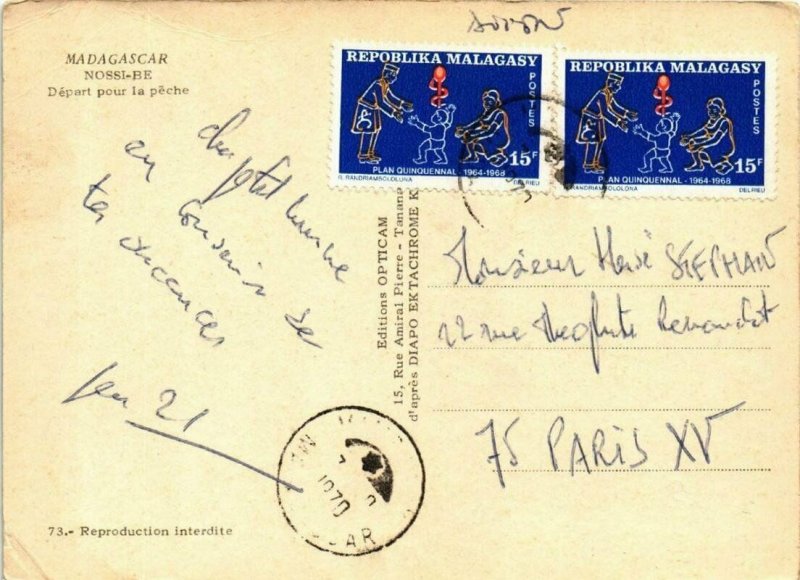 MADAGASCAR
NOSSI-BE
Départ pour la pêche
REPOBLIKA MALAGASY
POSTES
15F
PLAN QUINQUENNAL - 1964-1968
R. RANDRIAMBOLOLONA
DELRIEU
REPOBLIKA MALAGASY
POSTES
15F
PLAN QUINQUENNAL - 1964-1968
R. RANDRIAMBOLOLONA
DELRIEU
en souvenir de
tes vacances
Editions OPTICAM
15, Rue Amiral Pierre - Tanana
d'après DIAPO EKTACHROME K
Monsieur Hervé STEPHAN
22 rue Theophraste Renaudot
75 PARIS XV
1970
73.- Reproduction interdite